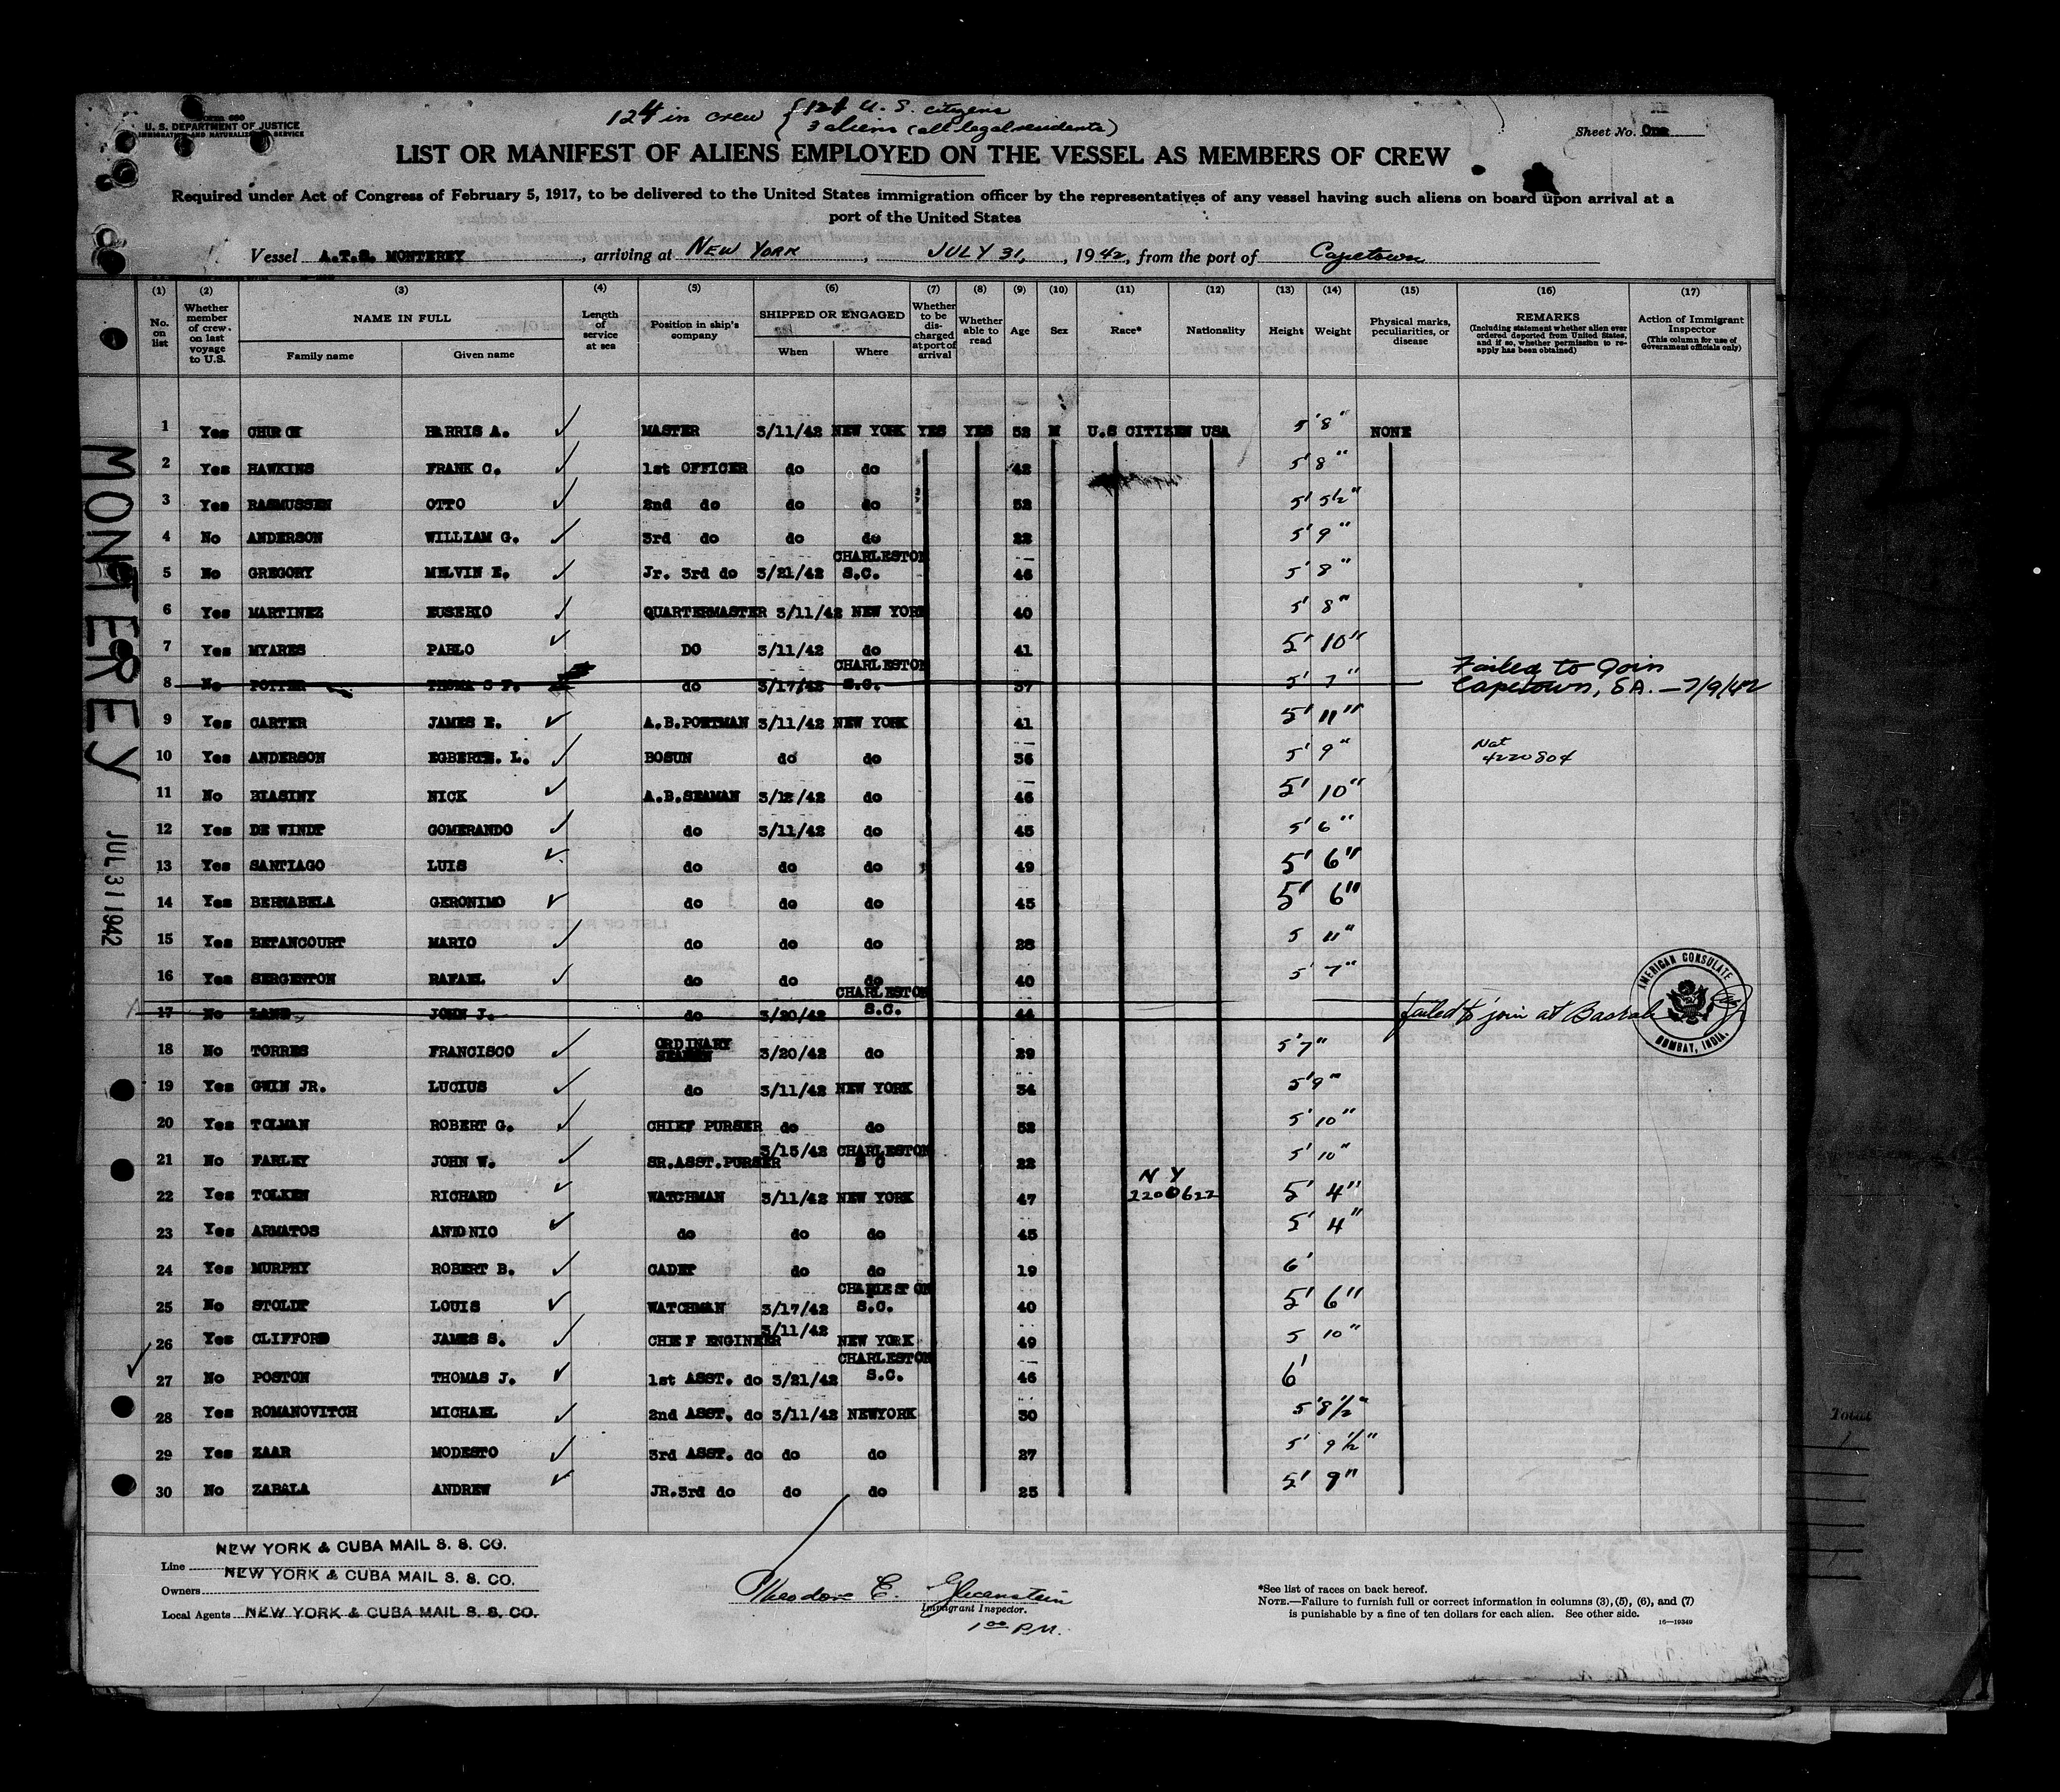 Form 680
U. S. DEPARTMENT OF JUSTICE
IMMIGRATION AND NATURALIZATION SERVICE
124 in crew { 121 U. S. citizens
3 aliens (all legal residents)
Sheet No. One
LIST OR MANIFEST OF ALIENS EMPLOYED ON THE VESSEL AS MEMBERS OF CREW
Required under Act of Congress of February 5, 1917, to be delivered to the United States immigration officer by the representatives of any vessel having such aliens on board upon arrival at a
port of the United States
Vessel A.T.S. MONTEREY, arriving at NEW YORK, JULY 31, 1942, from the port of Capetown
(1) (2) (3) (4) (5) (6) (7) (8) (9) (10) (11) (12) (13) (14) (15) (16) (17)
No. on list
Whether member of crew on last voyage to U.S.
NAME IN FULL
Family name Given name
Length of service at sea
Position in ship's company
SHIPPED OR ENGAGED
When Where
Whether to be discharged at port of arrival
Whether able to read
Age Sex Race* Nationality Height Weight
Physical marks, peculiarities, or disease
REMARKS
(Including statement whether alien ever ordered deported from United States, and if so, whether permission to reapply has been obtained)
Action of Immigrant Inspector
(This column for use of Government officials only)
1 Yes CHURCH HARRIS A. MASTER 3/11/42 NEW YORK YES YES 52 M U.S CITIZEN USA 5'8" NONE
2 Yes HAWKINS FRANK C. 1st OFFICER do do 42 5'8"
3 Yes RASMUSSEN OTTO 2nd do do do 52 5'5½"
4 No ANDERSON WILLIAM G. 3rd do do do 22 5'9"
5 No GREGORY MELVIN E. Jr. 3rd do 3/21/42 CHARLESTON S.C. 46 5'8"
6 Yes MARTINEZ EUSEBIO QUARTERMASTER 3/11/42 NEW YORK 40 5'8"
7 Yes MYARES PABLO DO 3/11/42 do 41 5'10"
8 No POTTER THOMAS F. do 3/17/42 CHARLESTON S.C. 37 5'7" Failed to Join
Capetown, SA. - 7/9/42
9 Yes CARTER JAMES E. A.B.POETMAN 3/11/42 NEW YORK 41 5'11"
10 Yes ANDERSON EGBERTE. L. BOSUN do do 36 5'9" Nat 4220804
11 No BIASINY NICK A.B.SEAMAN 3/12/42 do 46 5'10"
12 Yes DE WINDT GOMERANDO do 3/11/42 do 45 5'6"
13 Yes SANTIAGO LUIS do do do 49 5'6"
14 Yes BERNABELA GERONIMO do do do 45 5'6"
15 Yes BETANCOURT MARIO do do do 28 5 11"
16 Yes SERGENTON RAFAEL do do do 40 5'7"
17 No LANE JOHN J. do 3/20/42 CHARLESTON S.C. 44 failed to join at Basrah
AMERICAN CONSULATE
BOMBAY, INDIA.
18 No TORRES FRANCISCO ORDINARY SEAMEN 3/20/42 do 29 5'7"
19 Yes GWIN JR. LUCIUS do 3/11/42 NEW YORK 34 5'9"
20 Yes TOLMAN ROBERT G. CHIEF PURSER do do 52 5'10"
21 No FARLEY JOHN W. SR.ASST.PURSER 3/15/42 CHARLESTON S C 22 5'10"
22 Yes TOLKEN RICHARD WATCHMAN 3/11/42 NEW YORK 47 N Y 2200622 5'4"
23 Yes ARMATOS ANTONIO do do do 45 5'4"
24 Yes MURPHY ROBERT B. CADET do do 19 6'
25 No STOLDT LOUIS WATCHMAN 3/17/42 CHARLESTON S.C. 40 5'6"
26 Yes CLIFFORD JAMES S. CHIEF ENGINEER 3/11/42 NEW YORK 49 5 10"
27 No POSTON THOMAS J. 1st ASST. do 3/21/42 CHARLESTON S.C. 46 6'
28 Yes ROMANOVITCH MICHAEL 2nd ASST. do 3/11/42 NEWYORK 30 5'8½"
29 Yes ZAAR MODESTO 3rd ASST. do do do 27 5'9½"
30 No ZABALA ANDREW JR.3rd do do do 25 5'9"
MONTEREY
JUL 31 1942
Line NEW YORK & CUBA MAIL S. S. CO.
Owners NEW YORK & CUBA MAIL S. S. CO.
Local Agents NEW YORK & CUBA MAIL S. S. CO.
Theodore E.
Immigrant Inspector.
1 00 P.M.
*See list of races on back hereof.
NOTE.—Failure to furnish full or correct information in columns (3), (5), (6), and (7)
is punishable by a fine of ten dollars for each alien. See other side.
16—19349
Total